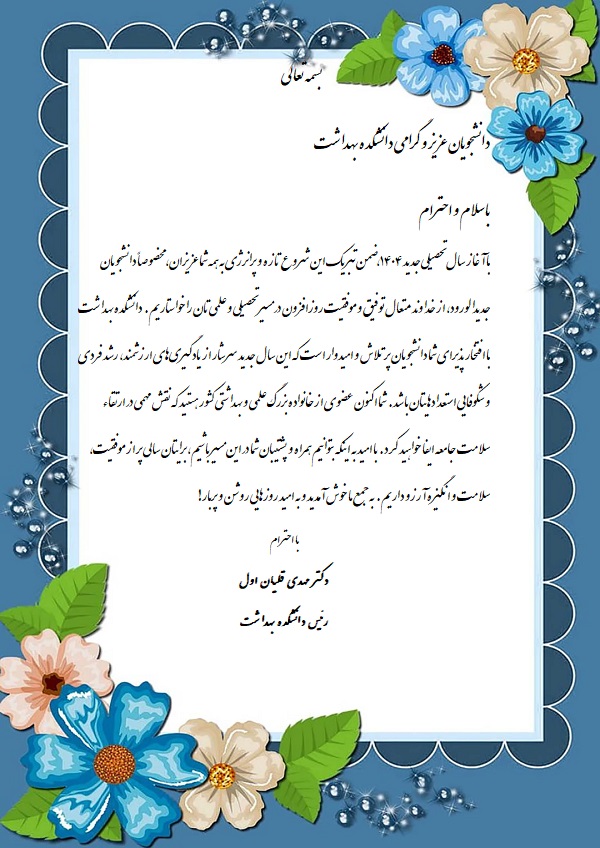 بسمه تعالی
دانشجویان عزیز و گرامی دانشکده بهداشت
باسلام و احترام
با آغاز سال تحصیلی جدید ۱۴۰۴، ضمن تبریک این شروع تازه و پرانرژی به همه شما عزیزان، مخصوصاً دانشجویان
جدیدالورود، از خداوند متعال توفیق و موفقیت روزافزون در مسیر تحصیلی و علمی تان را خواستاریم. دانشکده بهداشت
با افتخار پذیرای شما دانشجویان پرتلاش و امیدوار است که این سال جدید سرشار از یادگیری های ارزشمند، رشد فردی
و شکوفایی استعدادهایتان باشد. شما اکنون عضوی از خانواده بزرگ علمی و بهداشتی کشور هستید که نقش مهمی در ارتقاء
سلامت جامعه ایفا خواهید کرد. با امید به اینکه بتوانیم همراه و پشتیبان شما در این مسیر باشیم، برایتان سالی پر از موفقیت،
سلامت و انگیزه آرزو داریم. به جمع ما خوش آمدید و به امید روزهایی روشن و پربار!
با احترام
دکتر مهدی قلیان اول
رئیس دانشکده بهداشت